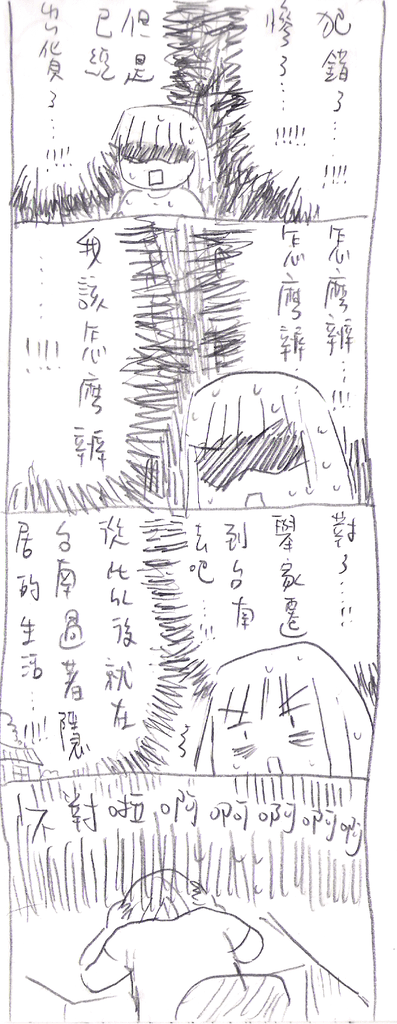 犯錯了...!!!!
慘了...!!!!!
但是
已經
出貨了...!!!!
怎麼辦...!!!
怎麼辦...
我該怎麼辦
......!!!!
對了...!!
舉家遷
到台南
去吧...!!!
從此以後就在
台南過著隱
居的生活...!!!!
不對啦啊啊啊啊啊